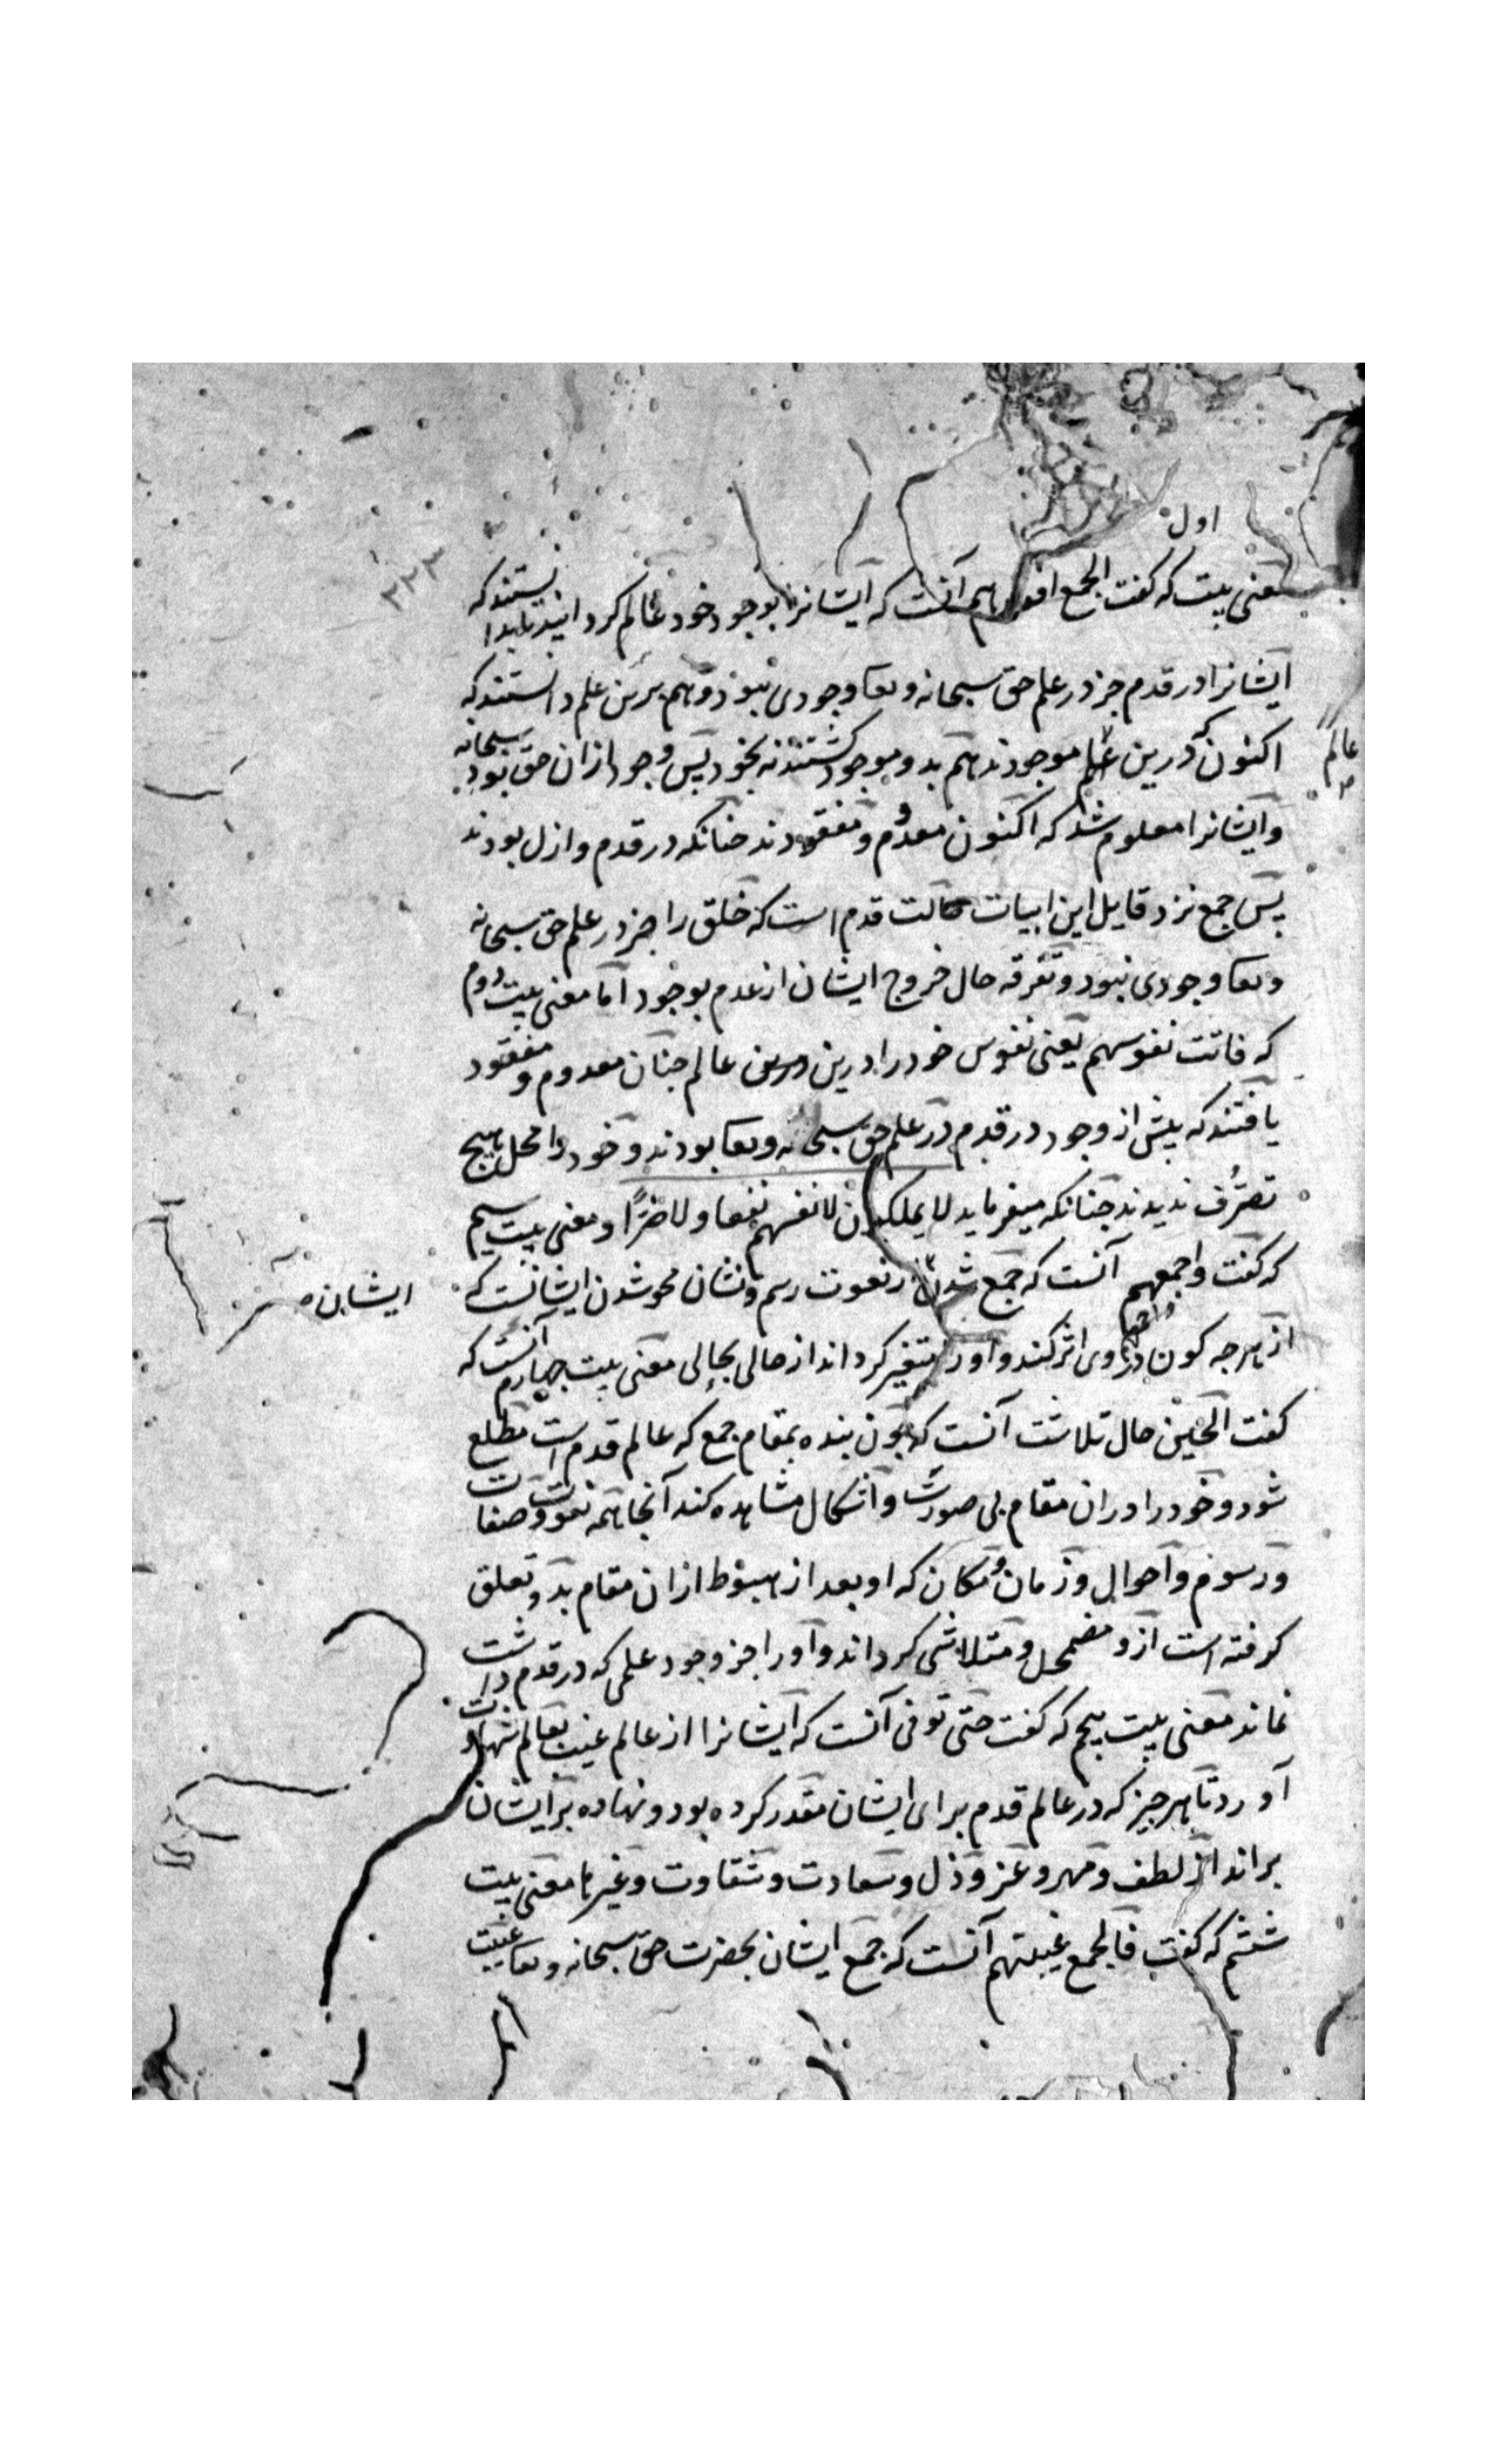 اول
معنی بیت که گفت الجمع افقدهم آنست که ایشانرا بوجود خود عالم کردانید تا بدانستند که
ایشانرا در قدم جز در علم حق سبحانه وتعا وجودی نبود و هم برین علم دانستند که
اکنون که درین عالم موجودند هم بدو موجود کشتند نه بخود پس وجود ازان حق بود سبحانه
عالم
وایشانرا معلوم شد که اکنون معدوم و مفقودند چنانکه در قدم وازل بودند
پس جمع نزد قایل این ابیات حالت قدم است که خلق را جز در علم حق سبحانه
وتعا وجودی نبود و تفرقه حال خروج ایشان از عدم بوجود اما معنی بیت دوم
که فاتت نفوسهم یعنی نفوس خود را درین عالم چنان معدوم و مفقود
یافتند که پیش از وجود در قدم در علم حق سبحانه وتعا بودند و خود را محل هیچ
تصرف ندیدند چنانکه میفرماید لا یملکون لانفسهم نفعا ولا ضرا ومعنی بیت سیم
که گفت واجمعهم آنست که جمع شدن در نعوت رسم ونشان محو شدن ایشانست که
ایشان
از هرچه کون در وی اثر کند و او را متغیر کرداند از حالی بحالی معنی بیت چهارم آنست که
گفت الحین حال تلاشت آنست که چون بنده بمقام جمع که عالم قدم است مطلع
شود وخود را دران مقام بی صورت و اشکال مشاهده کند آنجا همه نعوت وصفات
ورسوم واحوال وزمان ومکان که او بعد از هبوط ازان مقام بدو تعلق
کرفته است ازو مضمحل ومتلاشی کرداند واو را جز وجود علمی که در قدم داشت
نماند معنی بیت پنجم که گفت حتی توفی آنست که ایشانرا از عالم غیب بعالم شهادت
آورد تا هر چیز که در عالم قدم برای ایشان مقدر کرده بود ونهاده بر ایشان
براند از لطف وقهر وعز وذل وسعادت وشقاوت وغیرها معنی بیت
ششم که گفت فالجمع غیبتهم آنست که جمع ایشان بحضرت حق سبحانه وتعا غیبت
۲۲۳